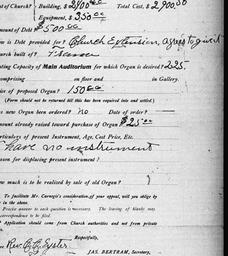 of Church? Building, $2400.00 Total Cost, $2,900.00
Equipment, $350.00
mount of Debt? $500.00
is Debt provided for? Church Extension, agrees to give it
urch built of? Frame
ating Capacity of Main Auditorium for Which Organ is desired? 225.
omprising on floor and in Gallery.
rice of proposed Organ? 150.00
(Form should not to be returned till this has been inquired into and settled.)
s new Organ been ordered? no Date of order?
mount already raised toward purchase of Organ $25.00
articulars of present Instrument, Age, Cost Price, Etc.
have no instrument
ason for displacing present instrument?
ow much is to be realized by sale of old Organ?
To facilitate Mr. Carnegie's consideration of your appeal, will you oblige by
in the above.
Precise answer to each question is necessary. The leaving of blanks may
correspondence to be filed.
Application should come from Church authorities and not from private
Respectfully,
JAS. BERTRAM, Secretary,
Rev.